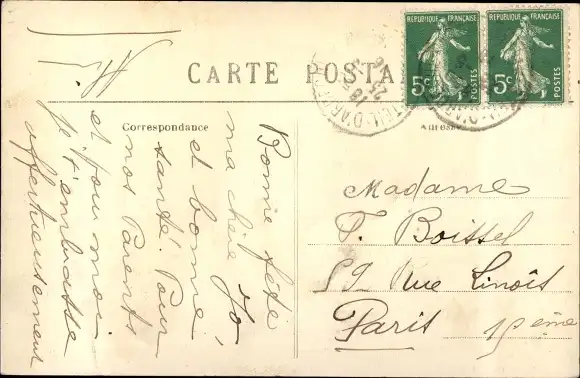 CARTE POSTA
RÉPUBLIQUE FRANÇAISE
5c POSTES
RÉPUBLIQUE FRANÇAISE
5c POSTES
Correspondance
Adresse
Bonne fête
ma chère Yo,
et bonne
santé! Pour
nos Parents
et pour moi
je t'embrasse
affectueusement
Madame
F. Boissel
59 Rue Linois
Paris 15ème